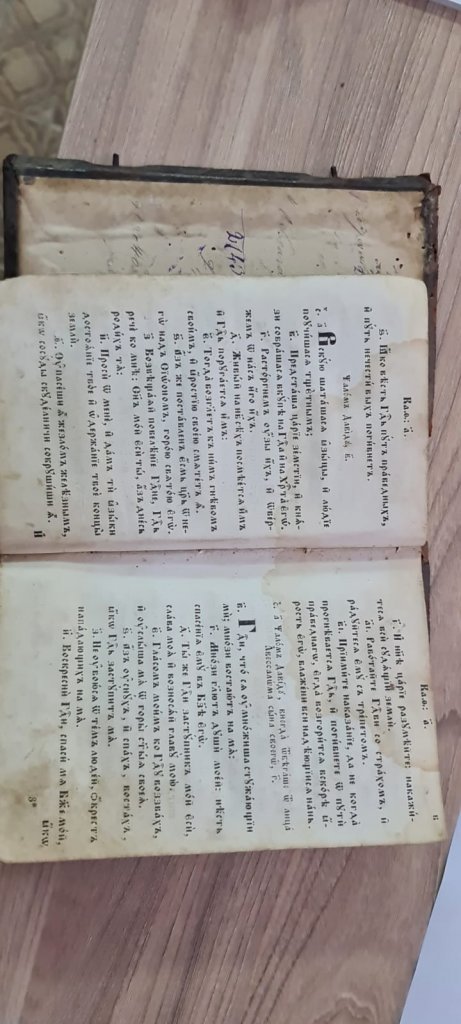 Каѳ: а҃.
ѕ҃. Ꙗ҆́кѡ вѣ́сть Гдⷭ҇ь пꙋ́ть првⷣныхъ,
и҆ пꙋ́ть нечести́выхъ поги́бнетъ.
Ѱало́мъ Даві́дꙋ, в҃.
а҃ Вскꙋ́ю шата́шасѧ ꙗ҆зы́цы, и҆ лю́дїе
поꙋчи́шасѧ тще́тнымъ;
в҃. Предста́ша ца́рїе зе́мстїи, и҆ кнѧ́-
зи собра́шасѧ вкꙋ́пѣ на Гдⷭ҇а и҆ на Хрⷭ҇та̀ є҆гѡ̀.
г҃. Расто́ргнемъ ᲂу҆́зы и҆́хъ, и҆ ѿве́р-
жемъ ѿ на́съ и҆́го и҆́хъ.
д҃. Живы́й на нб҃сѣ́хъ посмѣе́тсѧ и҆̀мъ,
и҆ Гдⷭ҇ь порꙋга́етсѧ и҆̀мъ.
є҃. Тогда̀ возгл҃етъ къ ни̑мъ гнѣ́вомъ
свои́мъ, и҆ ꙗ҆́ростїю свое́ю смѧте́тъ ѧ҆̀.
ѕ҃. А҆́зъ же поста́вленъ є҆́смь цр҃ь ѿ не-
гѡ̀ над̾ Сїѡ́номъ, горо́ю свѧто́ю є҆гѡ̀.
з҃. Возвѣща́ѧй повелѣ́нїе Гдⷭ҇не, Гдⷭ҇ь
речѐ ко мнѣ̀: Сн҃ъ мо́й є҆сѝ ты̀, а҆́зъ дне́сь
роди́хъ тѧ̀.
и҃. Просѝ ѿ менє̀, и҆ да́мъ тѝ ꙗ҆зы́ки
достоѧ́нїе твоѐ и҆ ѡ҆держа́нїе твоѐ концы̀
землѝ.
ѳ҃. Оу҆пасе́ши ѧ҆̀ жезло́мъ желѣ́знымъ,
ꙗ҆́кѡ сосꙋ́ды скꙋдє́льничи сокрꙋши́ши ѧ҆̀.
И҆
Каѳ: а҃.
в
і҃. И҆ нн҃ѣ ца́рїе разꙋмѣ́йте: накажи́-
тесѧ всѝ сꙋдѧ́щїи землѝ.
а҃і. Рабо́тайте Гдⷭ҇ви со стра́хомъ, и҆
ра́дꙋйтесѧ є҆мꙋ̀ съ тре́петомъ.
в҃і. Прїими́те наказа́нїе, да не когда̀
прогнѣ́ваетсѧ Гдⷭ҇ь, и҆ поги́бнете ѿ пꙋтѝ
пра́веднагѡ, є҆гда̀ возгори́тсѧ вско́рѣ ꙗ҆́-
рость є҆гѡ̀, блаже́ни всѝ надѣ́ющїисѧ на́нь.
Ѱало́мъ Даві́дꙋ, внегда̀ ѿбѣга́ше ѿ лица̀
А҆вессалѡ́ма сы́на своегѡ̀, г҃.
в҃. Гдⷭ҇и, что́ сѧ ᲂу҆мно́жиша стꙋжа́ющїи
мѝ; мно́зи востаю́тъ на мѧ̀:
г҃. Мно́зи гл҃ютъ дꙋшѝ мое́й: нѣ́сть
спасе́нїѧ є҆мꙋ̀ въ Бз҃ѣ є҆гѡ̀.
д҃. Ты́ же Гдⷭ҇и застꙋ́пникъ мо́й є҆сѝ,
сла́ва моѧ̀ и҆ возносѧ́й главꙋ̀ мою̀.
є҃. Гла́сомъ мои́мъ ко Гдⷭ҇ꙋ воззва́хъ,
и҆ ᲂу҆слы́ша мѧ̀ ѿ горы̀ ст҃ы́ѧ своеѧ̀.
ѕ҃. А҆́зъ ᲂу҆снꙋ́хъ, и҆ спа́хъ, воста́хъ,
ꙗ҆́кѡ Гдⷭ҇ь застꙋ́питъ мѧ̀.
з҃. Не ᲂу҆бою́сѧ ѿ те́мъ люде́й, ѻ҆́крестъ
напа́дающихъ на мѧ̀.
и҃. Воскреснѝ Гдⷭ҇и, спасѝ мѧ̀ Бж҃е мо́й,
ꙗ҆́кѡ